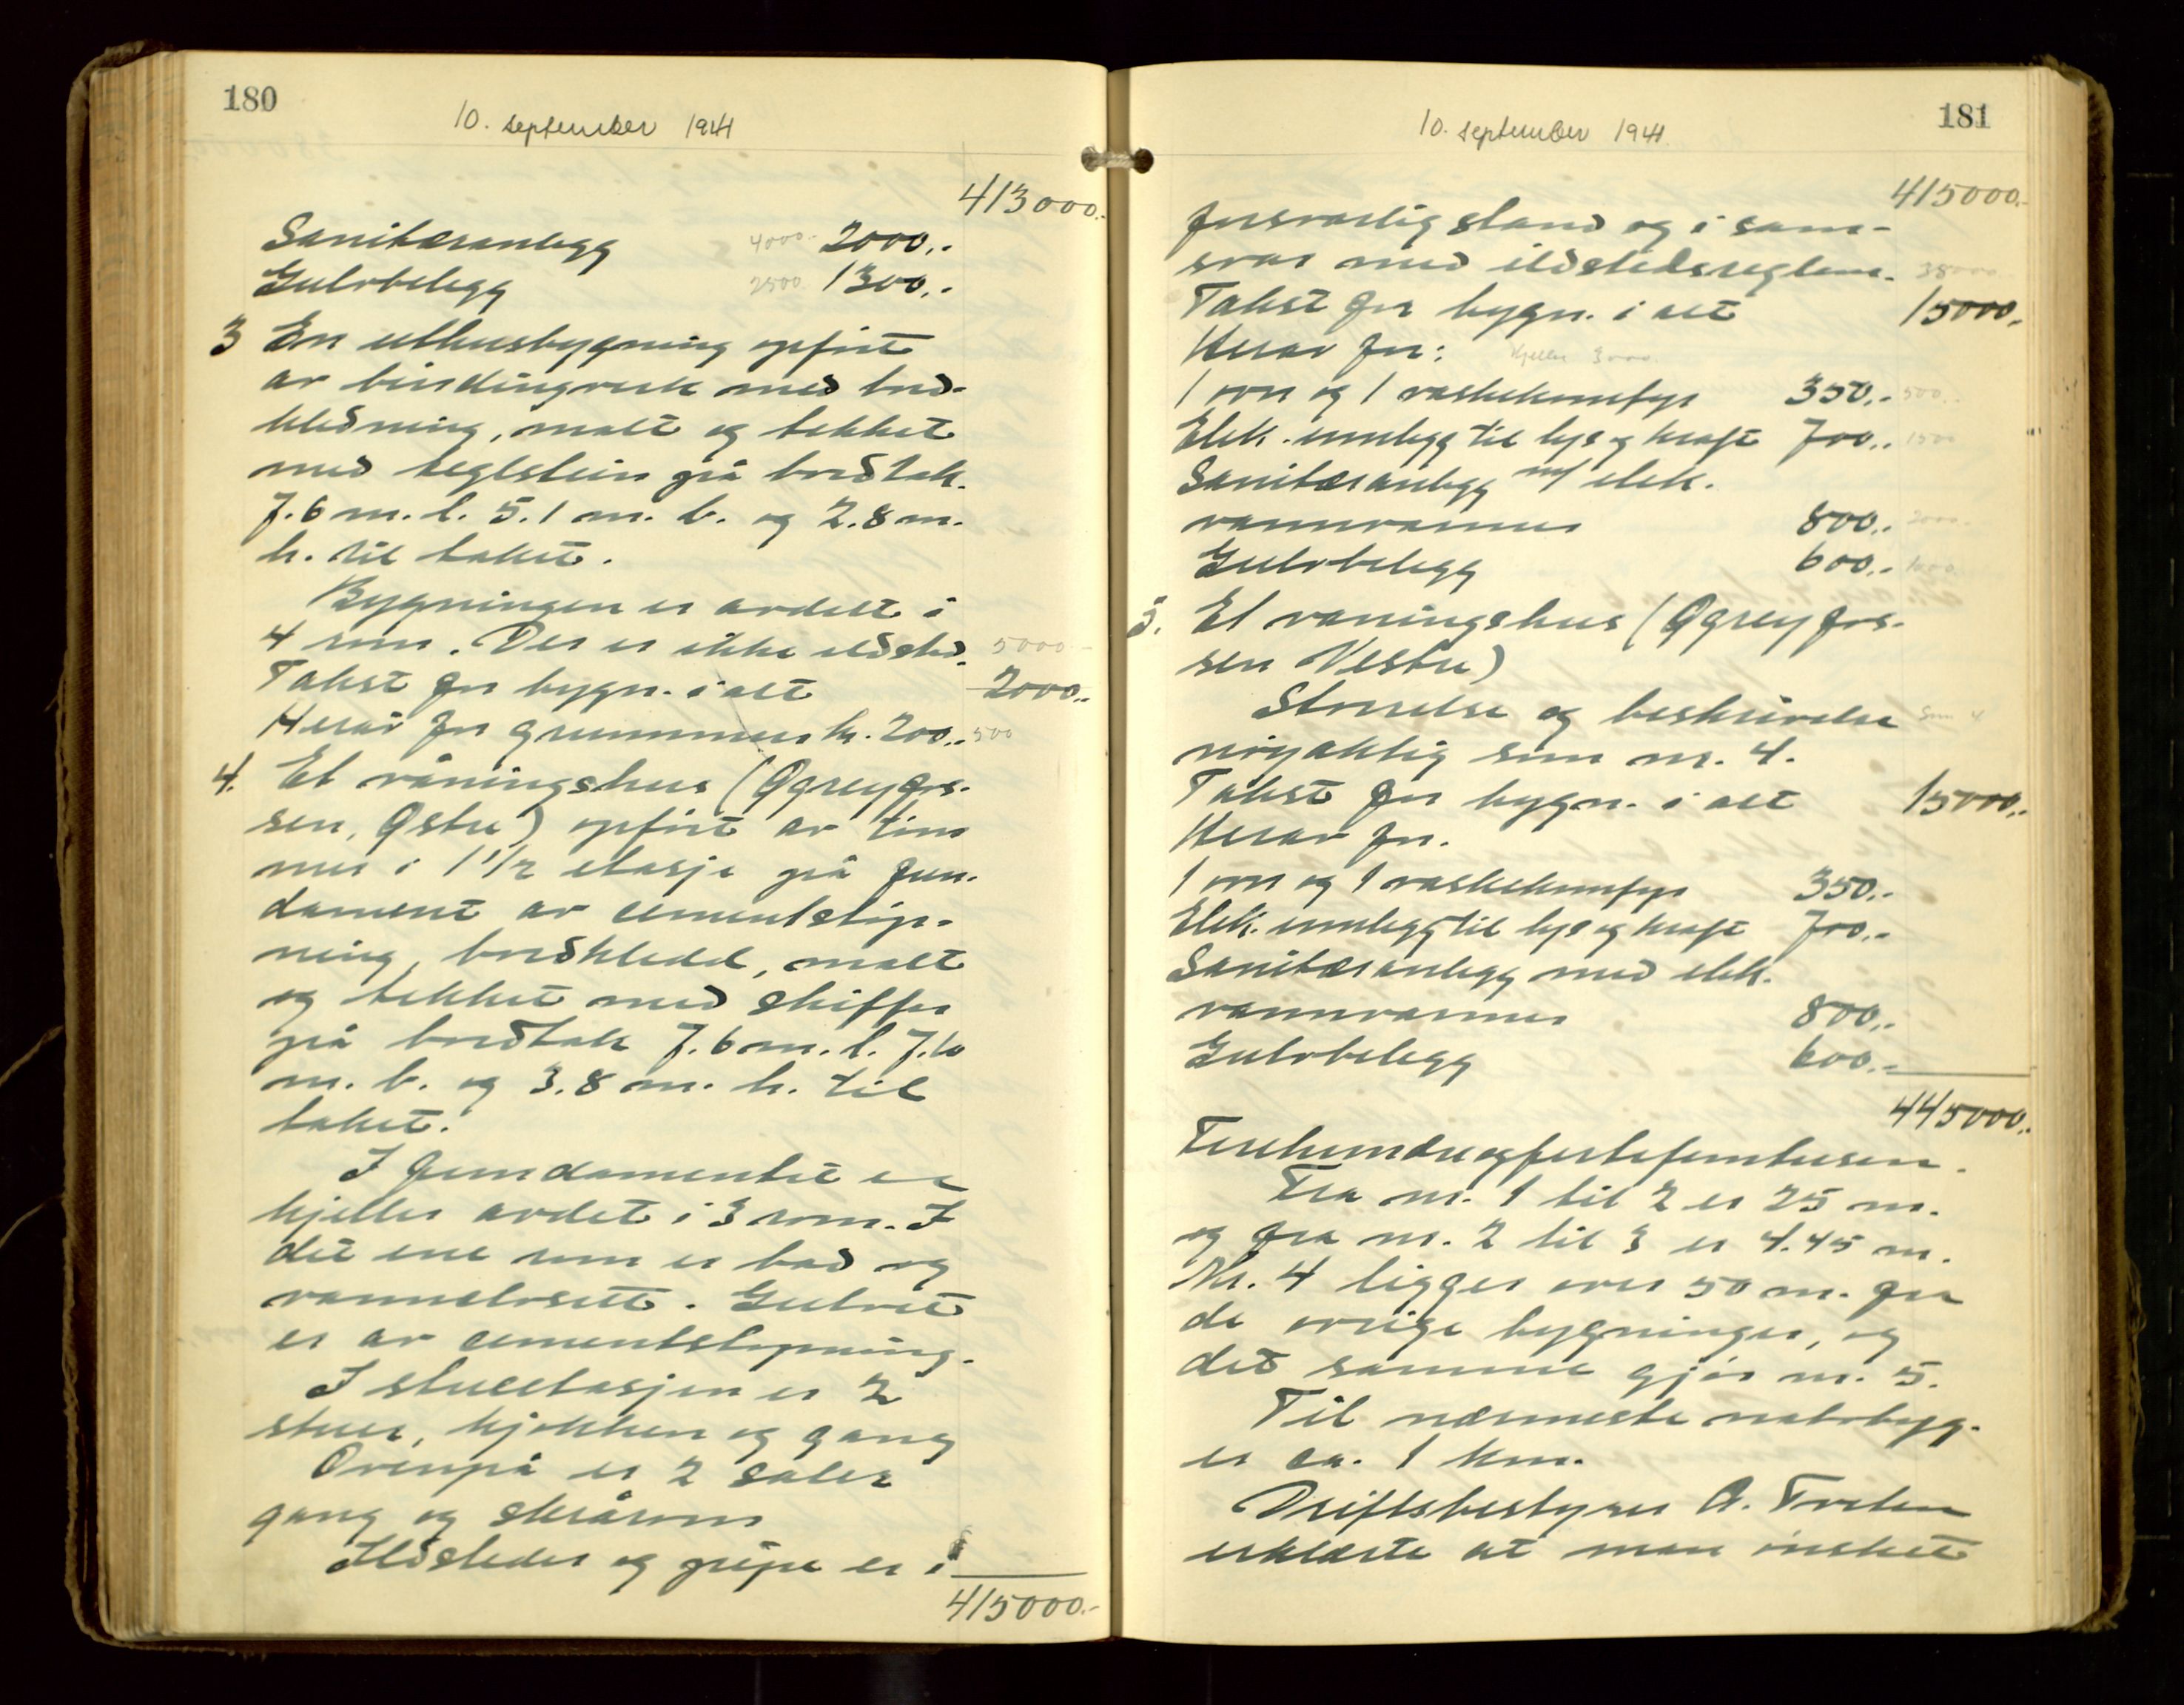 180
10. september 1941
413000.-
Sanitæranlegg 4000.- 2000.-
Gulvbelegg 2500. 1300.-
3 En uthusbygning opført
av bindingverk med bord-
kledning, malt og tekket
med teglstein på bordtak.
7.6 m. l. 5.1 m. b. og 2.8 m.
h. til taket.
Bygningen er avdelt i
4 rom. Der er ikke ildsted. 5000.-
Takst for bygn. i alt 2000.-
Herav for grunnmur kr. 200.- 500
4. Et våningshus (Øgreyfos-
sen, Østre) opført av tøm
mer i 1 1/2 etasje på fun-
dament av cementstøp-
ning, bordkledd, malt
og tekket med skiffer
på bordtak 7.6 m. l. 7.10
m. b. og 3.8 m. h. til
taket.
I fundamentet er
kjeller avdet i 3 rom. I
det ene rom er bad og
vannclosett. Gulvet
er av cementstøpning.
I stueetasjen er 2
stuer, kjøkken og gang
Ovenpå er 2 saler
gang og skrårom
Ildsteder og pipe er i
415000.-
181
10. september 1941.
415000.-
forsvarlig stand og i sam-
svar med ildstedsreglene. 38000.
Takst for bygn. i alt 15000.-
Herav for: Kjeller 3000.
1 ovn og 1 vaskekomfyr 350.- 500.
Elek. innlegg til lys og kraft 700.- 1500
Sanitæranlegg m/ elek.
vannvarmer 800.- 2000.
Gulvbelegg 600.- 1000.
5. Et vaningshus (Øgreyfos-
sen Vestre)
Størrelse og beskrivelse Som 4
nøyaktig som nr. 4.
Takst for bygn. i alt 15000.-
Herav for.
1 ovn og 1 vaskekomfyr 350.-
Elek. innlegg til lys og kraft 700.-
Sanitæranlegg med elek.
vannvarmer 800.-
Gulvbelegg 600.-
445000.-
Firehundreogførtifemtusen.
Fra nr. 1 til 2 er 25 m.
og fra nr. 2 til 3 er 4.45 m.
Nr. 4 ligger over 50 m. fra
de øvrige bygninger, og
det samme gjør nr. 5.
Til nærmeste nabobygg.
er ca. 1 km.
Driftsbestyrer A.
erklærte at man ønsket